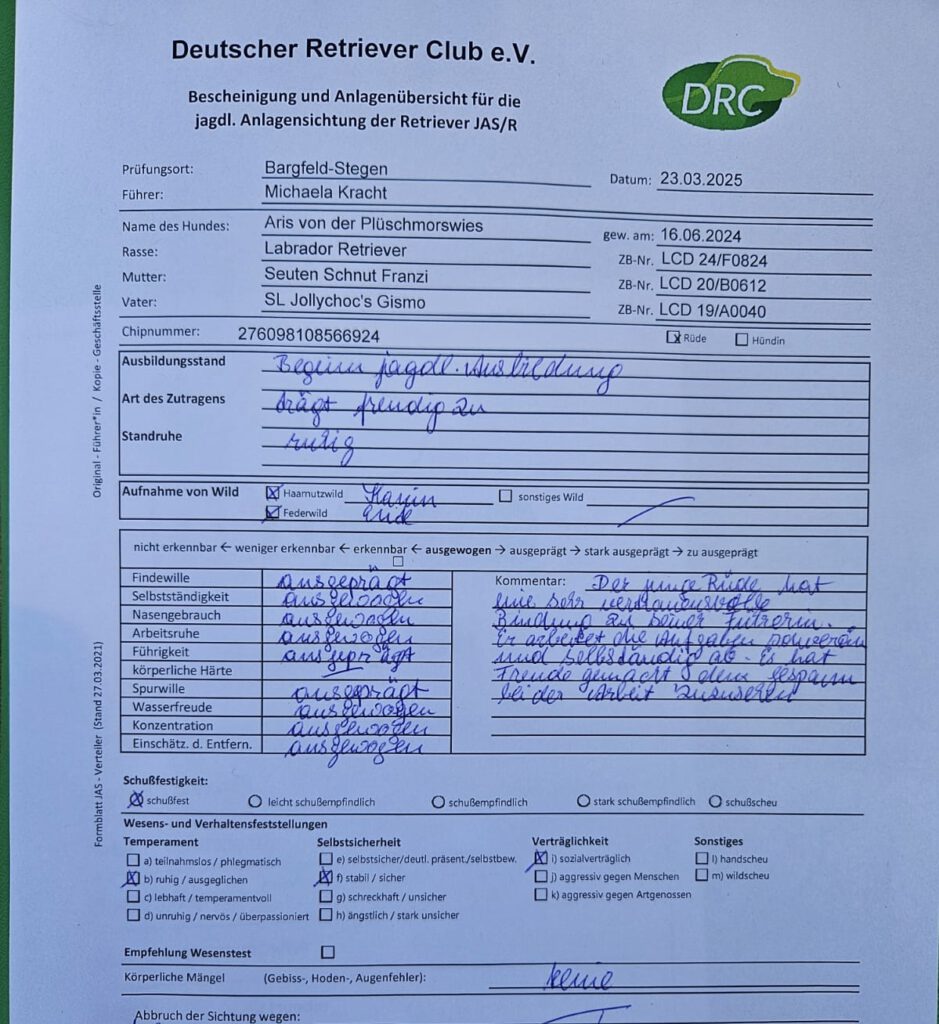 Deutscher Retriever Club e.V.
DRC
Bescheinigung und Anlagenübersicht für die
jagdl. Anlagensichtung der Retriever JAS/R
Prüfungsort: Bargfeld-Stegen
Datum: 23.03.2025
Führer: Michaela Kracht
Name des Hundes: Aris von der Plüschmorswies
gew. am: 16.06.2024
Rasse: Labrador Retriever
ZB-Nr. LCD 24/F0824
Mutter: Seuten Schnut Franzi
ZB-Nr. LCD 20/B0612
Vater: SL Jollychoc's Gismo
ZB-Nr. LCD 19/A0040
Chipnummer: 276098108566924
Rüde Hündin
Ausbildungsstand Beginn jagdl. Ausbildung
Art des Zutragens trägt freudig zu
Standruhe ruhig
Aufnahme von Wild Haarnutzwild Kanin sonstiges Wild
Federwild Ente
nicht erkennbar ← weniger erkennbar ← erkennbar ← ausgewogen → ausgeprägt → stark ausgeprägt → zu ausgeprägt
Findewille ausgeprägt
Selbstständigkeit ausgewogen
Nasengebrauch ausgewogen
Arbeitsruhe ausgewogen
Führigkeit ausgeprägt
körperliche Härte
Spurwille ausgeprägt
Wasserfreude ausgewogen
Konzentration ausgewogen
Einschätz. d. Entfern. ausgewogen
Kommentar: Der junge Rüde hat
eine sehr vertrauensvolle
Bindung zu seiner Führerin.
Er arbeitet die Aufgaben souverän
und selbständig ab. Es hat
Freude gemacht dem Gespann
bei der Arbeit zuzusehen
Schußfestigkeit:
schußfest leicht schußempfindlich schußempfindlich stark schußempfindlich schußscheu
Wesens- und Verhaltensfeststellungen
Temperament Selbstsicherheit Verträglichkeit Sonstiges
a) teilnahmslos / phlegmatisch e) selbstsicher/deutl. präsent./selbstbew. i) sozialverträglich l) handscheu
b) ruhig / ausgeglichen f) stabil / sicher j) aggressiv gegen Menschen m) wildscheu
c) lebhaft / temperamentvoll g) schreckhaft / unsicher k) aggressiv gegen Artgenossen
d) unruhig / nervös / überpassioniert h) ängstlich / stark unsicher
Empfehlung Wesenstest
Körperliche Mängel (Gebiss-, Hoden-, Augenfehler): keine
Abbruch der Sichtung wegen:
Original - Führer*in / Kopie - Geschäftsstelle
Formblatt JAS - Verteiler (Stand 27.03.2021)